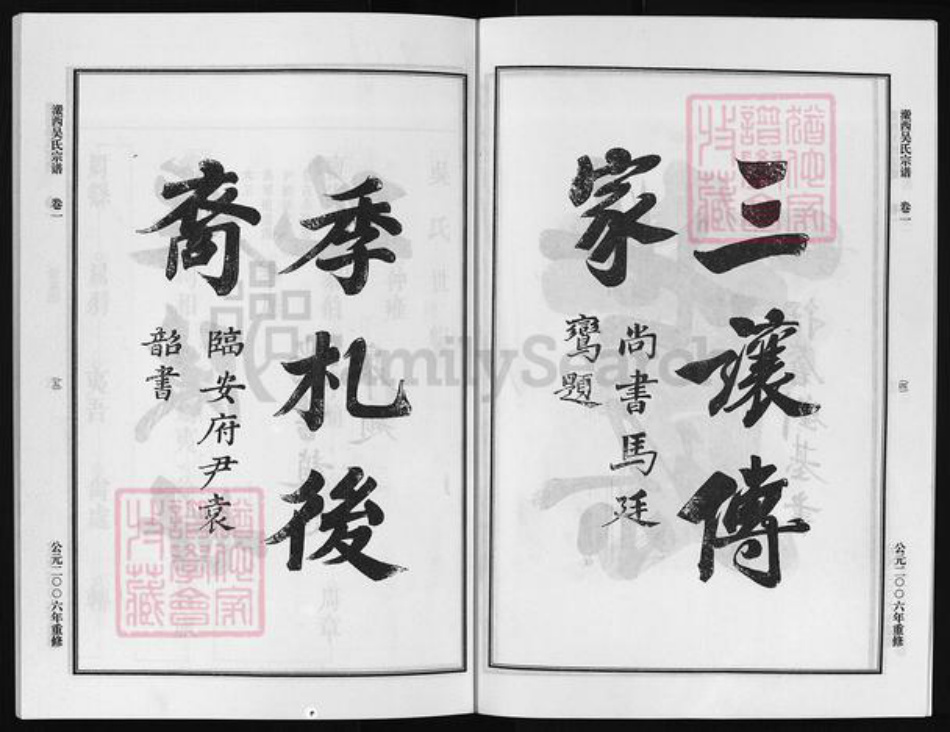 瀠西吴氏宗谱 卷一
公元二〇〇六年重修
三讓傳
家
尚書馬廷
鸞題
季札後
裔
臨安府尹袁
韶書
瀠西吴氏宗谱 卷一
公元二〇〇六年重修
FamilySearch